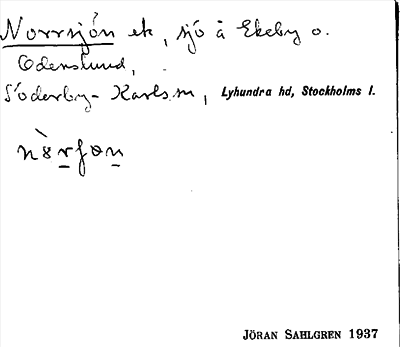 Norrsjön ek, sjö å Ekeby o.
Odenslund,
Söderby-Karls sn, Lyhundra hd, Stockholms l.
JÖRAN SAHLGREN 1937